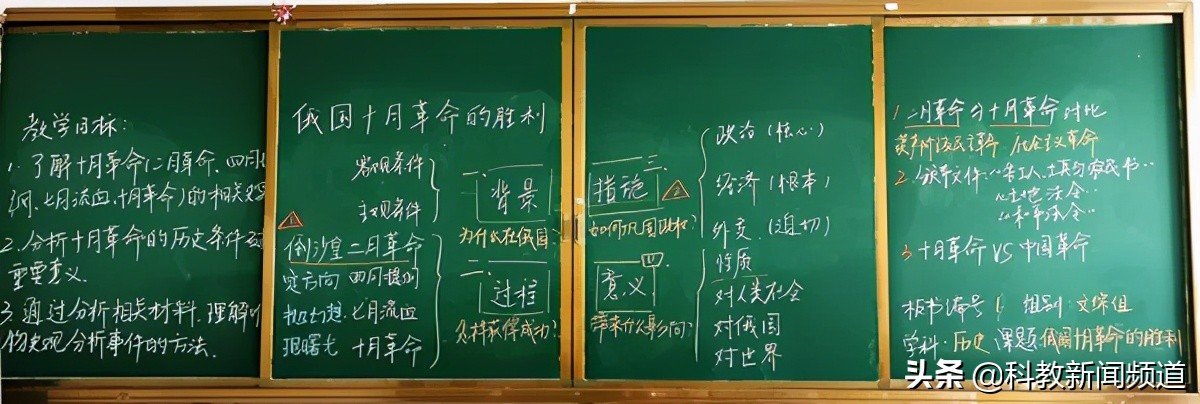 教学目标:
1. 了解十月革命(二月革命、四月
纲、七月流血、十月革命)的相关史实
2. 分析十月革命的历史条件及
重要意义.
3. 通过分析相关材料,理解
客观分析事件的方法.
俄国十月革命的胜利
客观条件
主观条件
一、背景
为什么在俄国?
1
倒沙皇 二月革命
定方向 四月提纲
七月流血
现曙光 十月革命
二、过程
怎样获得成功?
三、措施
2
如何巩固政权?
政治(核心)
经济(根本)
外交(迫切)
四、意义
带来什么影响?
性质
对人类社会
对俄国
对世界
1 二月革命与十月革命对比
资产阶级民主革命 社会主义革命
2. 《告工人、士兵与农民书》
《土地法令》
《和平法令》
3 十月革命 VS 中国革命
板书编号 1 组别 文综组
学科·历史 课题 俄国十月革命的胜利
头条 @科教新闻频道